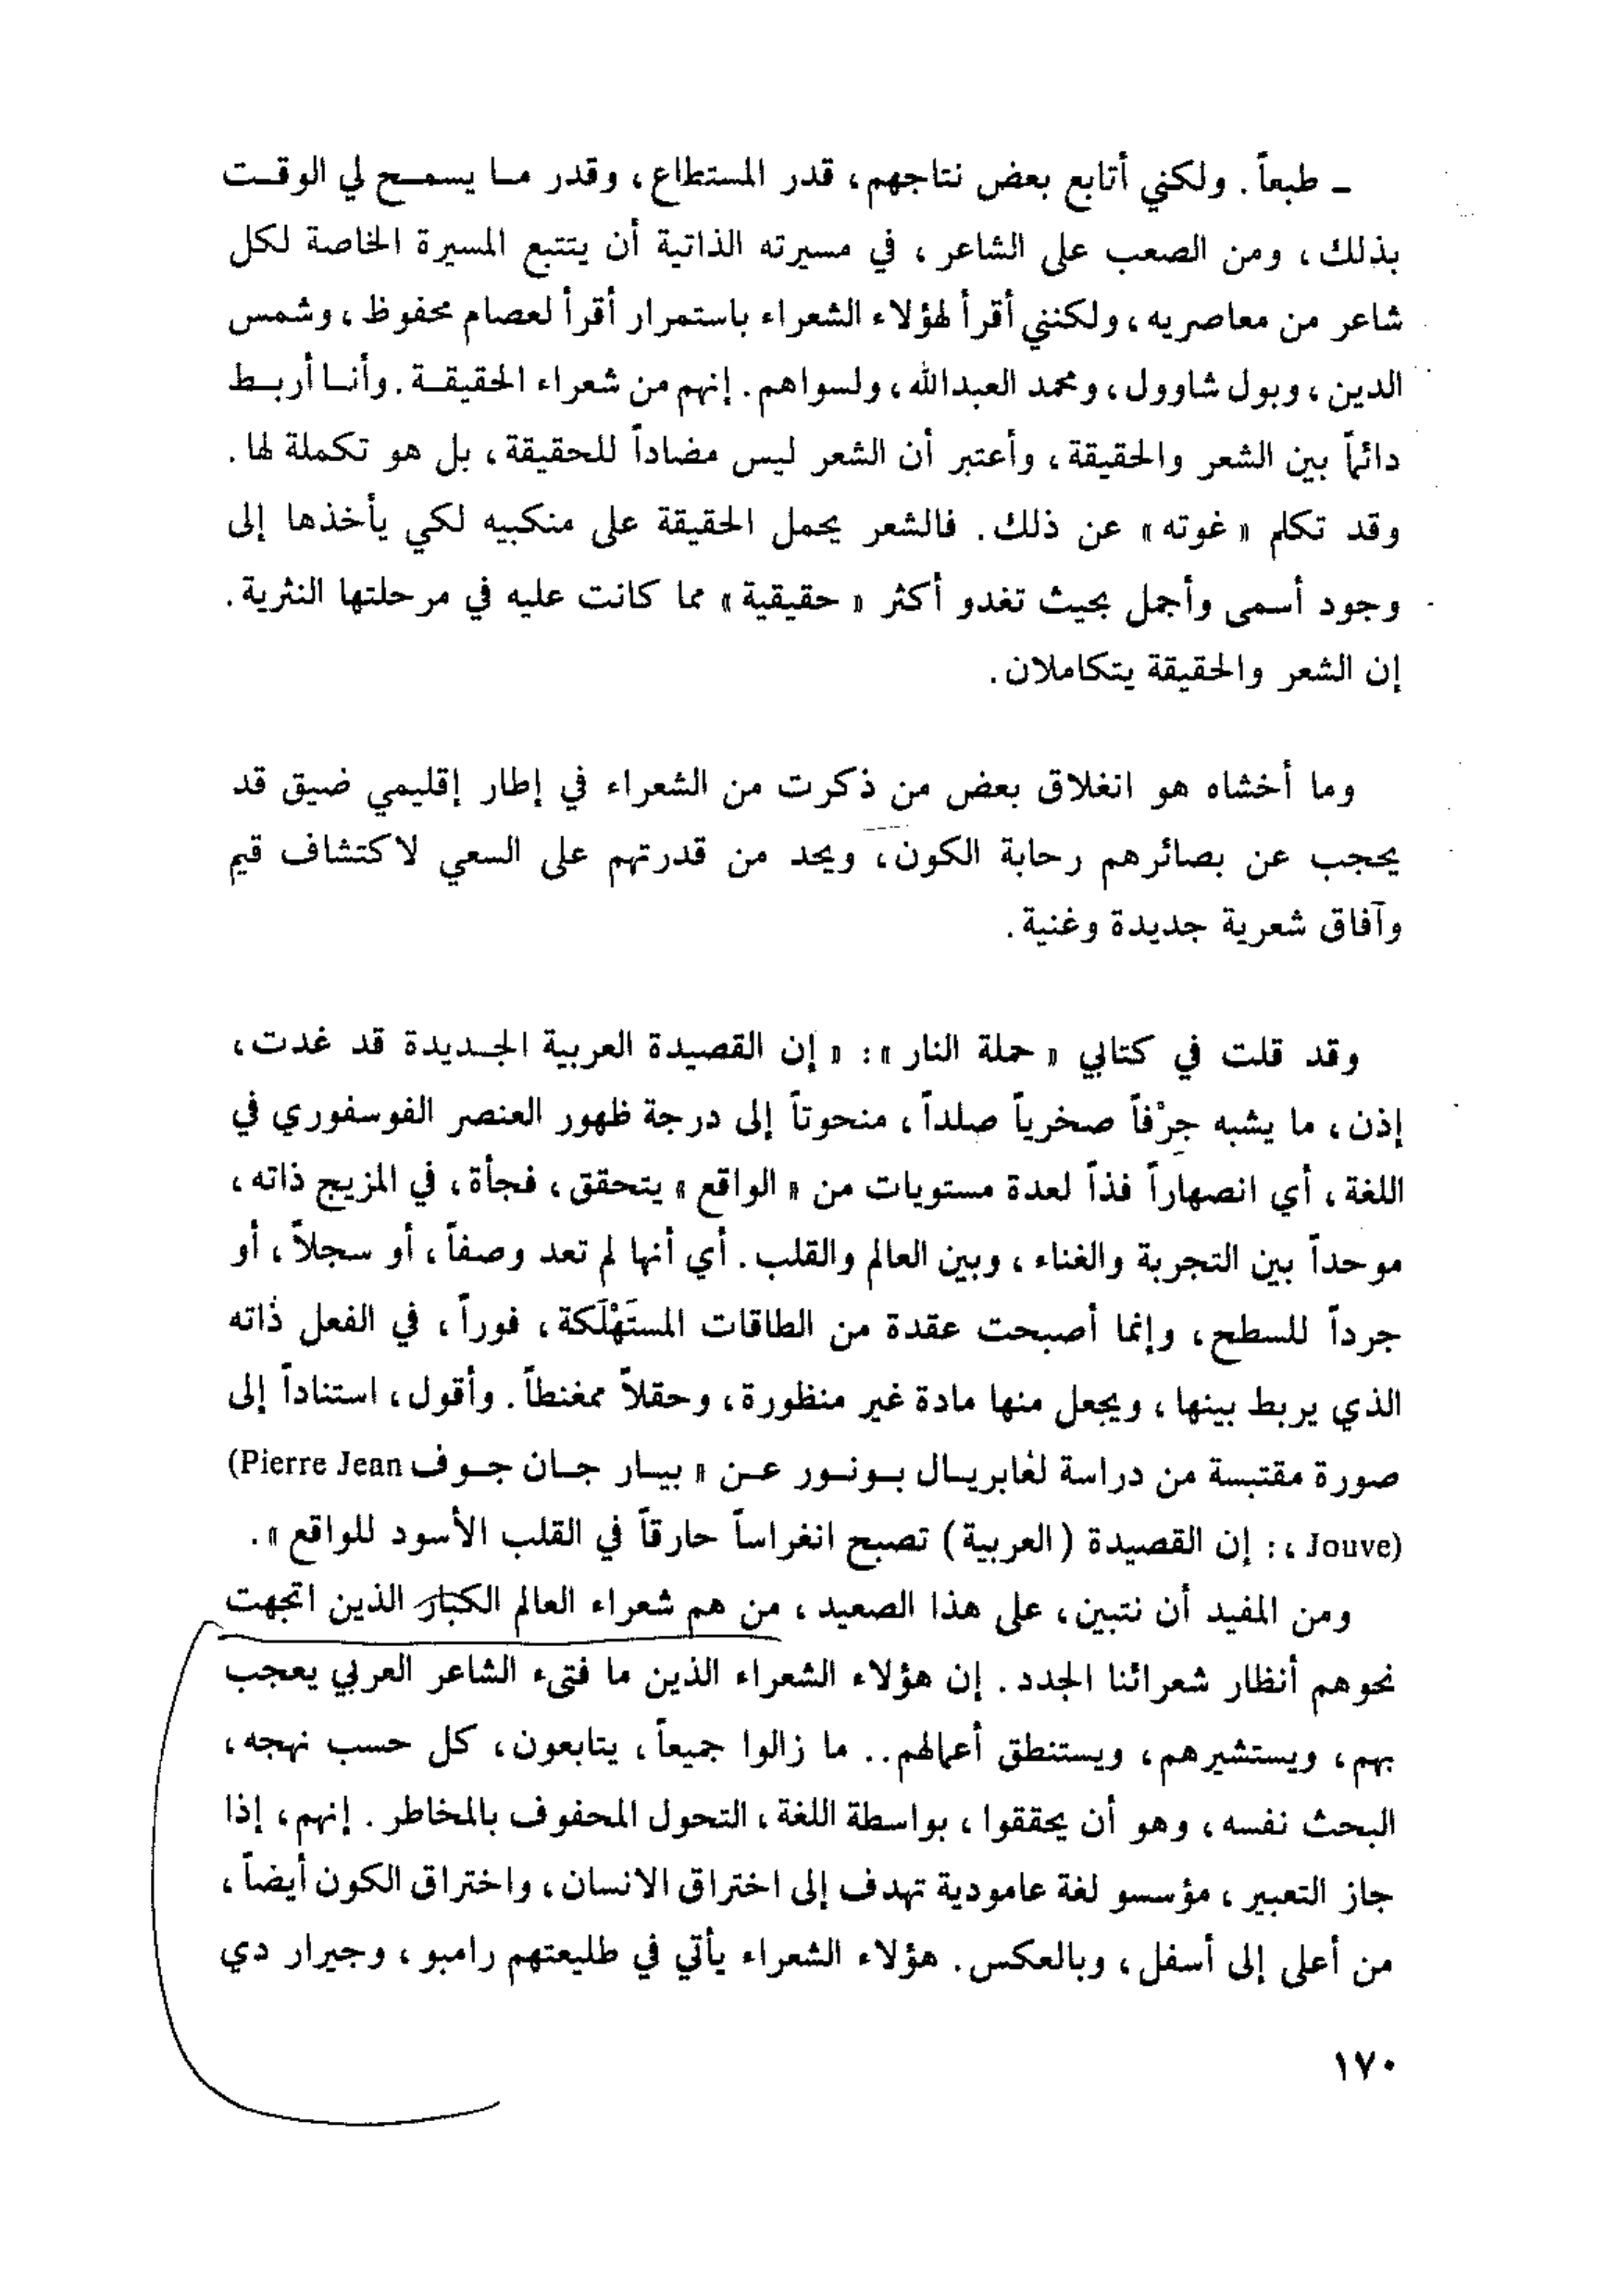 ـ طبعاً. ولكني أتابع بعض نتاجهم، قدر المستطاع، وقدر مـا يسمـح لي الوقـت
بذلك، ومن الصعب على الشاعر، في مسيرته الذاتية أن يتتبع المسيرة الخاصة لكل
شاعر من معاصريه، ولكنني أقرأ لهؤلاء الشعراء باستمرار أقرأ لعصام محفوظ، وشمس
الدين، وبول شاوول، ومحمد العبدالله، ولسواهم. إنهم من شعراء الحقيقـة. وأنـا أربـط
دائماً بين الشعر والحقيقة، وأعتبر أن الشعر ليس مضاداً للحقيقة، بل هو تكملة لها.
وقد تكلم « غوته » عن ذلك. فالشعر يحمل الحقيقة على منكبيه لكي يأخذها إلى
وجود أسمى وأجمل بحيث تغدو أكثر « حقيقية » مما كانت عليه في مرحلتها النثرية.
إن الشعر والحقيقة يتكاملان.
وما أخشاه هو انغلاق بعض من ذكرت من الشعراء في إطار إقليمي ضيق قد
يحجب عن بصائرهم رحابة الكون، ويحد من قدرتهم على السعي لاكتشاف قيم
وآفاق شعرية جديدة وغنية.
وقد قلت في كتابي « حملة النار »: « إن القصيدة العربية الجـديدة قد غدت،
إذن، ما يشبه جِرْفاً صخرياً صلداً، منحوتاً إلى درجة ظهور العنصر الفوسفوري في
اللغة، أي انصهاراً فذاً لعدة مستويات من « الواقع » يتحقق، فجأة، في المزيج ذاته،
موحداً بين التجربة والغناء، وبين العالم والقلب. أي أنها لم تعد وصفاً، أو سجلاً، أو
جرداً للسطح، وإنما أصبحت عقدة من الطاقات المستَهْلَكة، فوراً، في الفعل ذاته
الذي يربط بينها، ويجعل منها مادة غير منظورة، وحقلاً ممغنطاً. وأقول، استناداً إلى
صورة مقتبسة من دراسة لغابريـال بـونـور عـن « بيـار جـان جـوف (Pierre Jean
Jouve) ،: إن القصيدة (العربية) تصبح انغراساً حارقاً في القلب الأسود للواقع ».
ومن المفيد أن نتبين، على هذا الصعيد، من هم شعراء العالم الكبار الذين اتجهت
نحوهم أنظار شعرائنا الجدد. إن هؤلاء الشعراء الذين ما فتىء الشاعر العربي يعجب
بهم، ويستشيرهم، ويستنطق أعمالهم.. ما زالوا جميعاً، يتابعون، كل حسب نهجه،
البحث نفسه، وهو أن يحققوا، بواسطة اللغة، التحول المحفوف بالمخاطر. إنهم، إذا
جاز التعبير، مؤسسو لغة عامودية تهدف إلى اختراق الانسان، واختراق الكون أيضاً،
من أعلى إلى أسفل، وبالعكس. هؤلاء الشعراء يأتي في طليعتهم رامبو، وجيرار دي
١٧٠